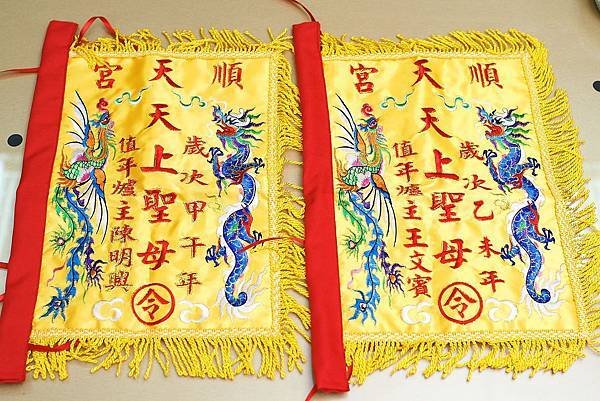 順天宮
歲次甲午年
天上聖母
令
值年爐主陳明興
順天宮
歲次乙未年
天上聖母
令
值年爐主王文賓